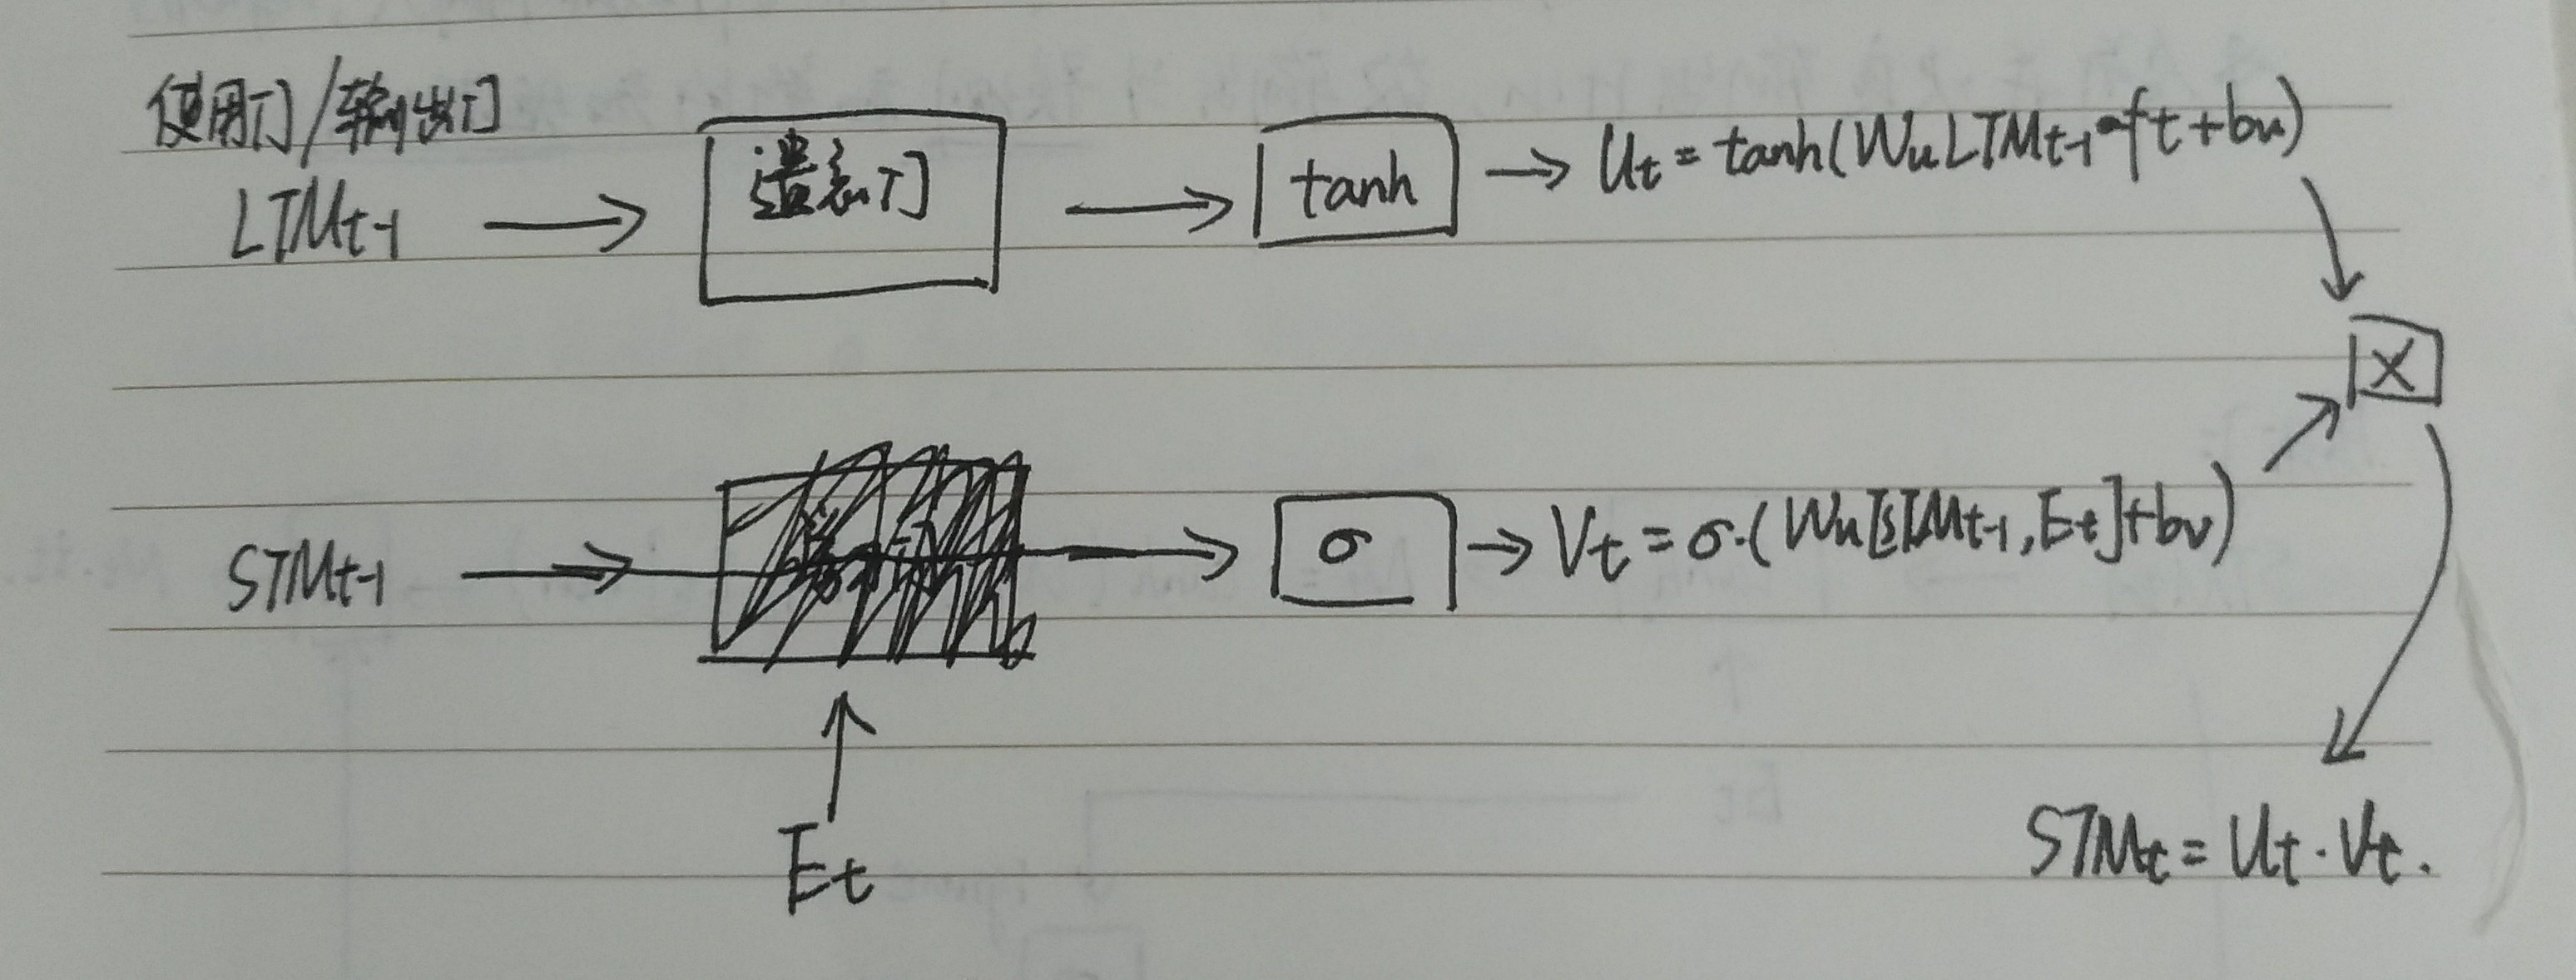 使用门/输出门
LTMt-1 → 遗忘门 → tanh → Ut = tanh(WuLTMt-1·ft+bu)
X
STMt-1 → σ → Vt = σ·(Wu[STMt-1,Et]+bv)
Et
STMt = Ut·Vt.